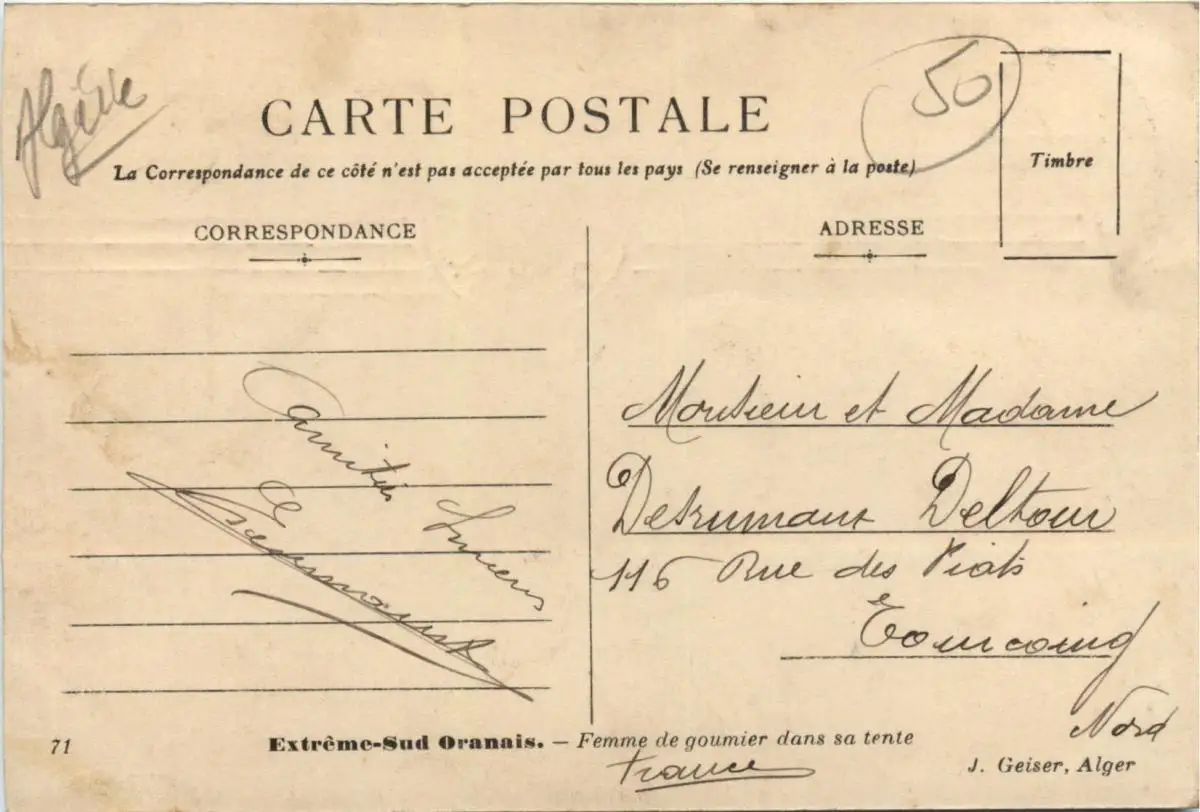 Algérie
50
CARTE POSTALE
La Correspondance de ce côté n'est pas acceptée par tous les pays (Se renseigner à la poste)
Timbre
CORRESPONDANCE
ADRESSE
amitiés
Lucien
Monsieur et Madame
Desrumaux Deltour
116 Rue des Piats
Tourcoing
Nord
France
71
Extrême-Sud Oranais. — Femme de goumier dans sa tente
J. Geiser, Alger